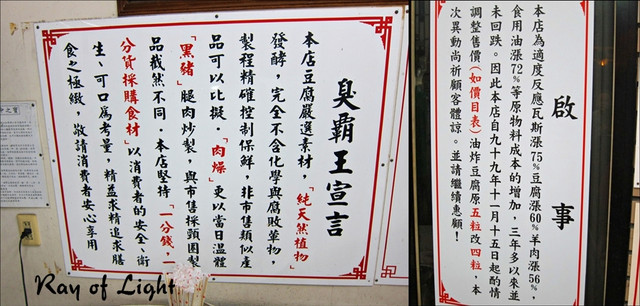 臭霸王宣言
本店豆腐嚴選素材，「純天然植物」
發酵，完全不含化學與腐敗葷物，
製程精確控制保鮮，非市售類似產
品可以比擬。「肉燥」更以當日溫體
「黑豬」腿肉炒製，與市售採頸圈製
品截然不同。本店堅持「一分錢，一
分貨採購食材」以消費者的安全、衛
生、可口為考量，精益求精追求膳
食之極緻，敬請消費者安心享用
啟事
本店為適度反應瓦斯漲75%豆腐漲60%羊肉漲56%、
食用油漲72%等原物料成本的增加，三年多以來並
未回跌。因此本店自九十九年十一月十五日起酌情
調整售價(如價目表)油炸豆腐原五粒改四粒。本
次異動尚祈顧客體諒。並請繼續惠顧！
Ray of Light